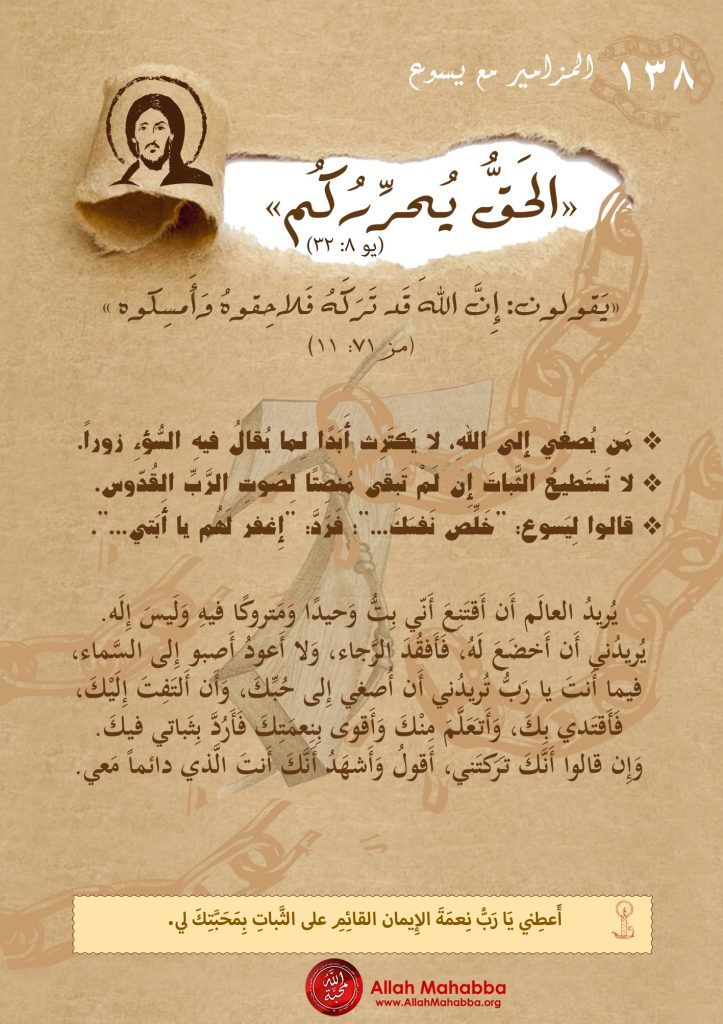 ١٣٨ المزامير مع يسوع
«الحَقُّ يُحرِّرُكُم»
(يو ٨: ٣٢)
«يَقولون: إِنَّ اللهَ قَد تَرَكَهُ فَلاحِقوهُ وَأَمسِكوه»
(مز ٧١: ١١)
❖ مَن يُصغي إلى اللهِ، لا يَكتَرِث أَبَدًا لِما يُقالُ فيهِ السُّوْءِ زوراً.
❖ لا تَستَطيعُ الثَّباتَ إن لَم تَبقى مُنصَتًا لِصَوتِ الرَّبِّ القُدّوس.
❖ قالوا لِيَسوع: "خَلِّص نَفسَكَ..."؛ فَرَدَّ: "إغفر لَهُم يا أَبَتي...".
يُريدُ العالَم أَن أَقتَنِعَ أَنّي بِتُّ وَحيدًا وَمَتروكًا فيهِ وَلَيسَ إِلَه.
يُريدُني أَن أَخضَعَ لَهُ، فَأَفقُدَ الرَّجاء، وَلا أَعودُ أَصبو إِلى السَّماء،
فيما أَنتَ يا رَبُّ تُريدُني أَن أُصغي إِلى حُبِّكَ، وَأَن أَلتَفِتَ إِلَيْكَ،
فَأَقتَدي بِكَ، وَأَتَعَلَّمَ مِنْكَ وَأَقوى بِنِعمَتِكَ فَأَرُدَّ بِثَباتي فيكَ.
وَإِن قالوا أَنَّكَ تَرَكتَني، أَقولُ وَأَشهَدُ أَنَّكَ أَنتَ الَّذي دائماً مَعي.
أَعطِني يَا رَبُّ نِعمَةَ الإِيمان القائِمِ على الثَّباتِ بِمَحَبَّتِكَ لي.
الله محبة
Allah Mahabba
www.AllahMahabba.org